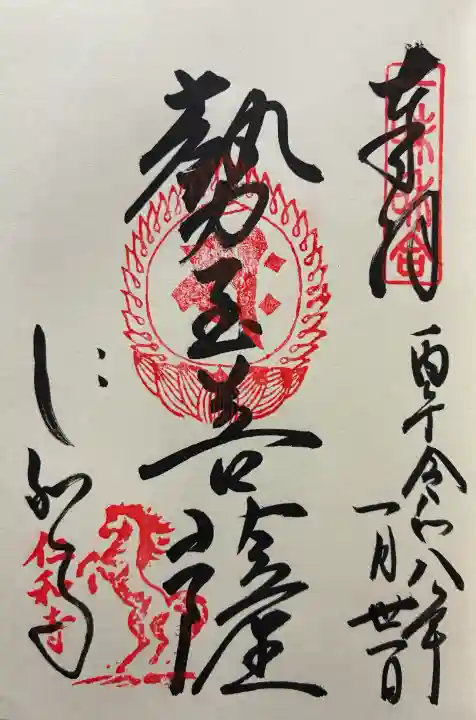 奉納
丙午令和八年
一月丗一日
勢至菩薩
仁和寺
仁和寺